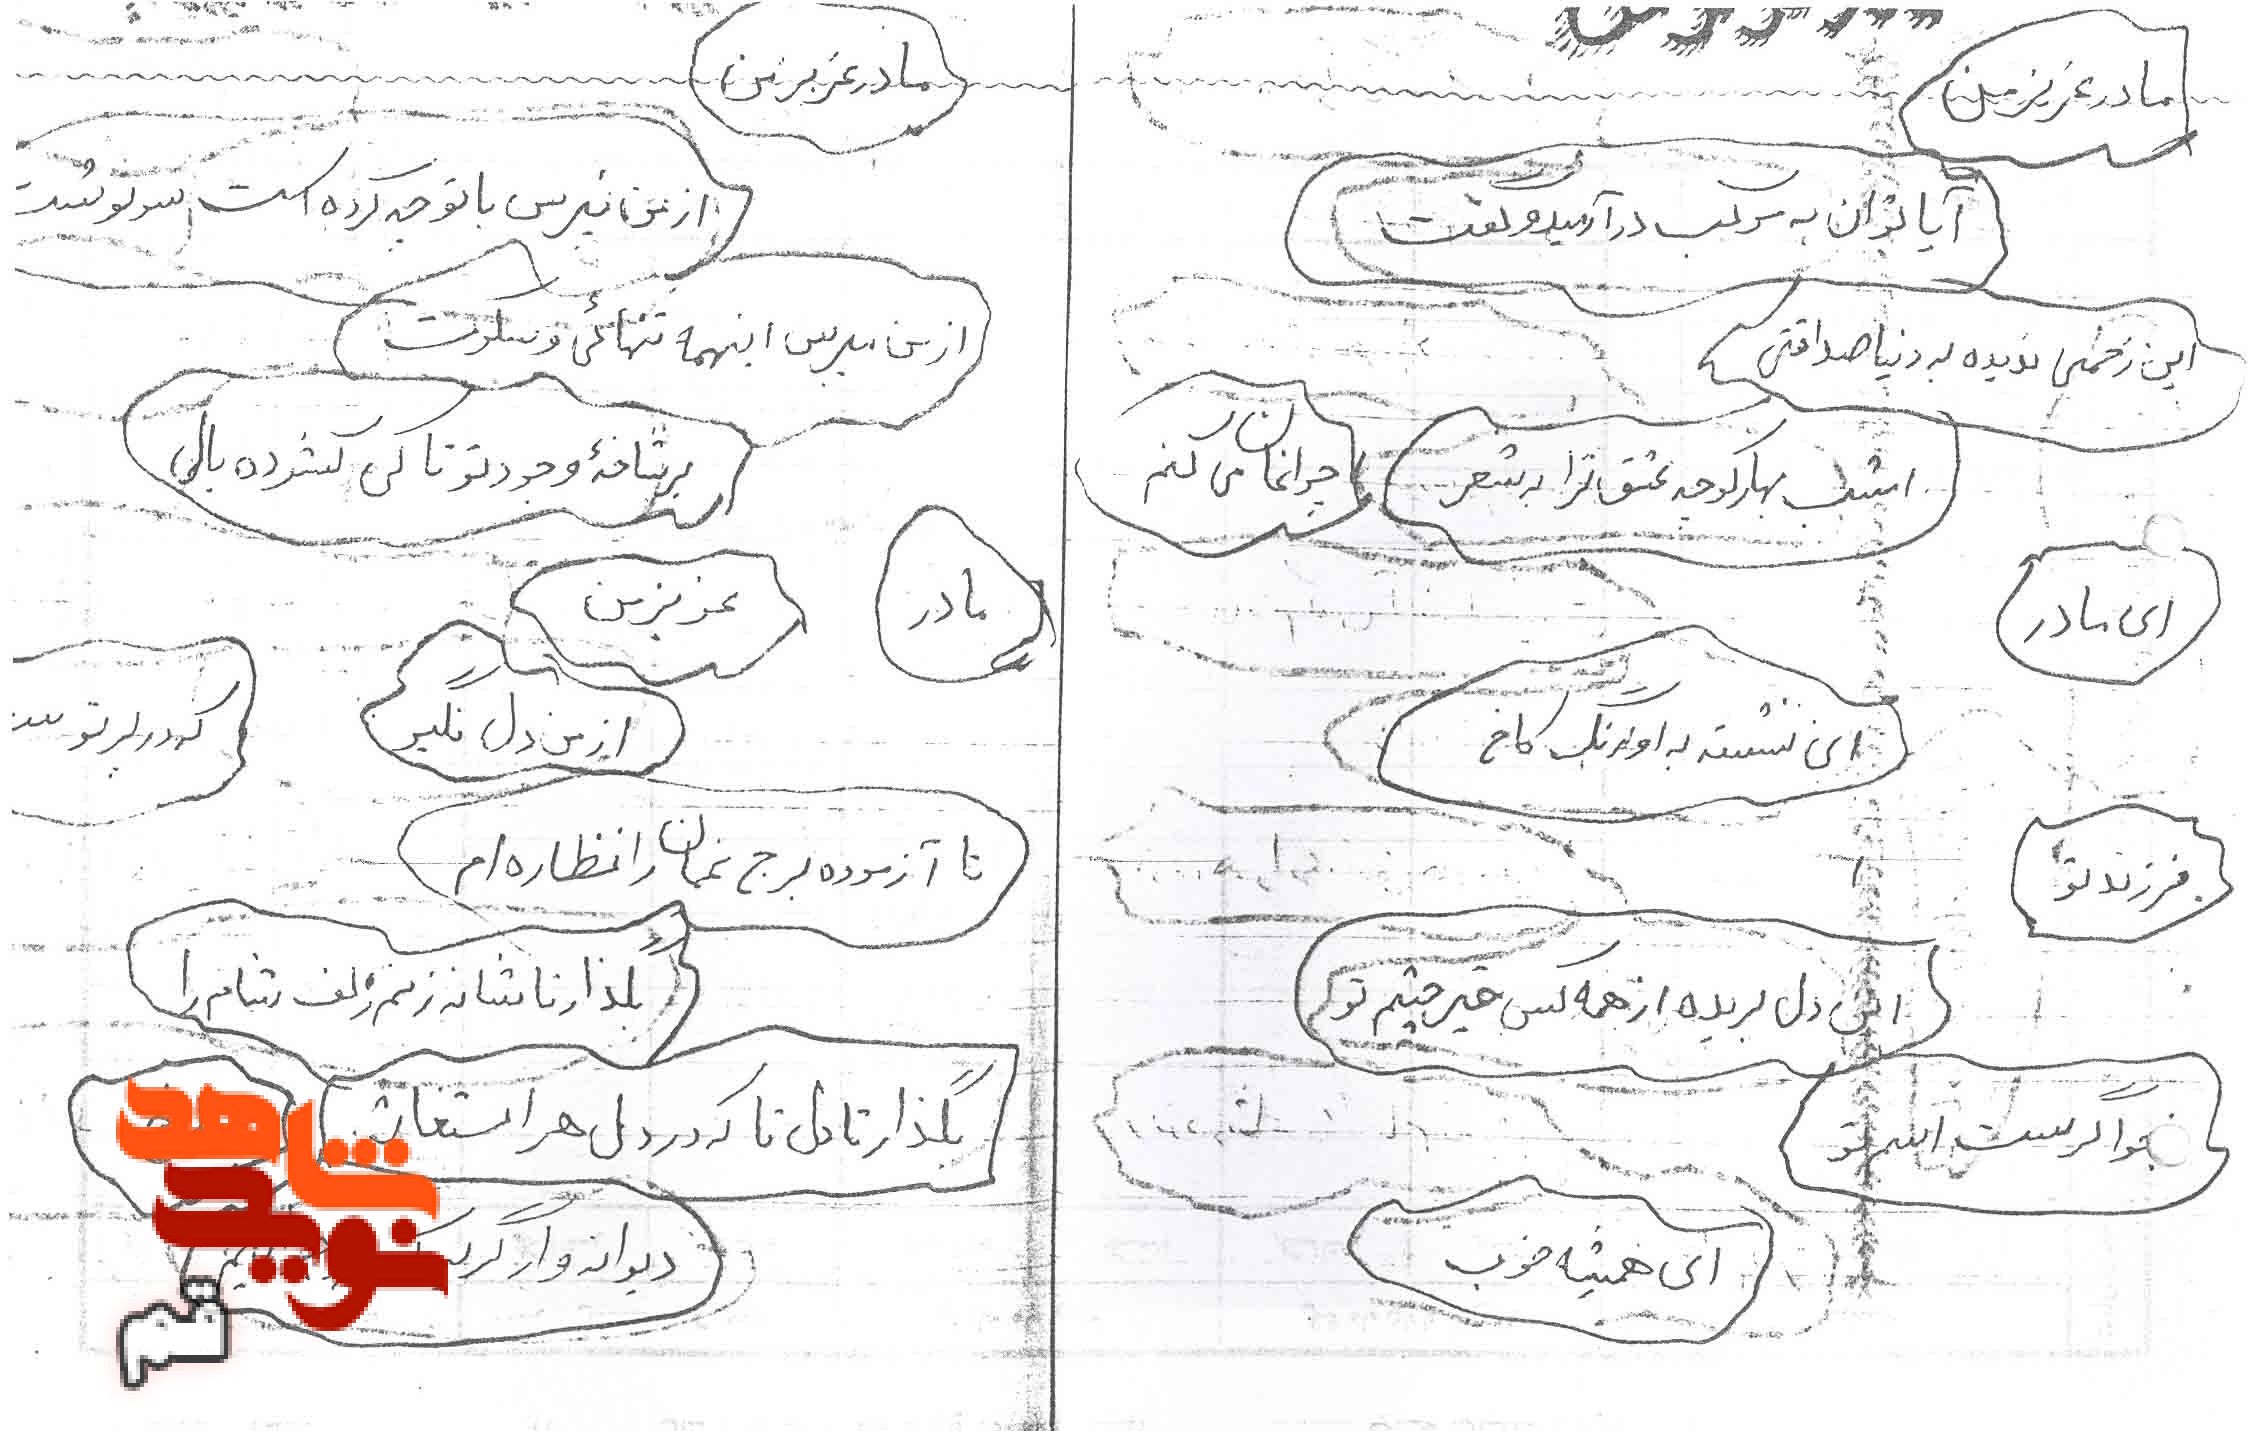 مادر عزیز من
آیا توان به مرکب درآمید و گفت
این زخمی ندیده به دنیا صداقتی
امشب بهار کوچه عشق ترا به شعر
چراغان می کنم
ای مادر
ای نشسته به اورنگ کاخ
فرزند تو
این دل بریده از همه کس خیر چشم تو
اگر است
ای همیشه خوب
مادر عزیز من
از من نپرس با تو چه کرده است سرنوشت
از من مپرس اینهمه تنهائی و سکوت
بر شانهٔ وجود تو تا کی گشوده بال
مادر
عزیز من
از من دل نگیر
که در بر تو
تا آزموده برج غمان را نظاره ام
بگذار تا شانه زنم زلف شام را
بگذار تا دل تا که در دل هر استغاثه
دیوانه وار
شاهد
نوید